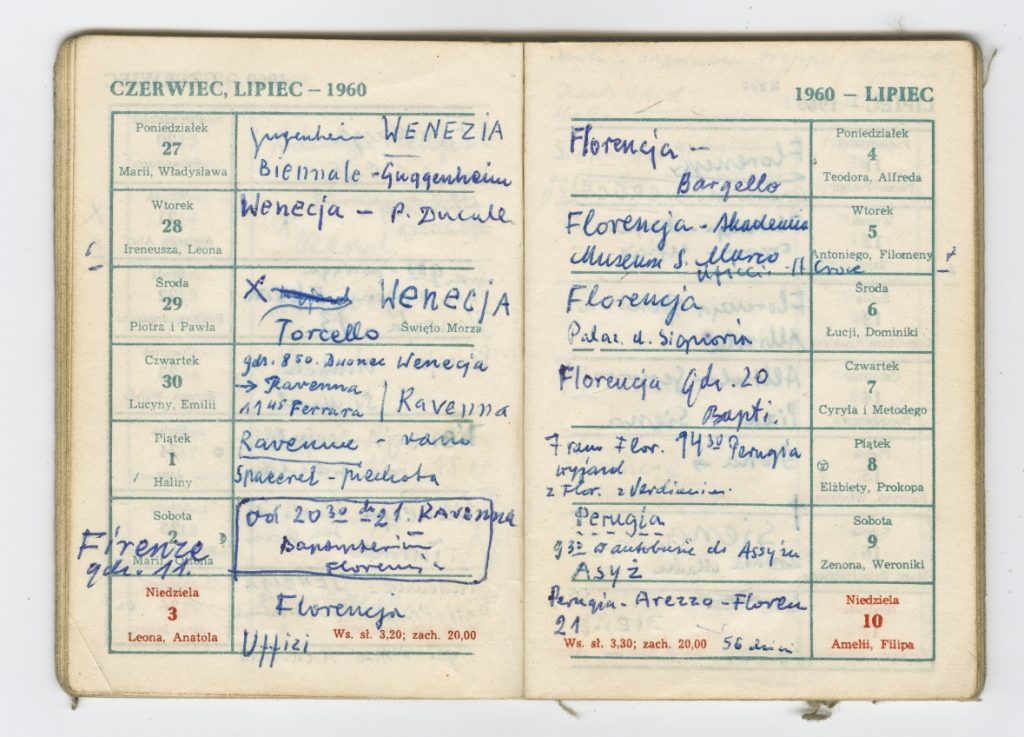 CZERWIEC, LIPIEC – 1960
Poniedziałek
27
Marii, Władysława
WENEZIA
Biennale - Guggenheim
Wtorek
28
Ireneusza, Leona
Wenecja – P. Ducale
6
Środa
29
Piotra i Pawła
X WENECJA
Torcello
Święto Morza
Czwartek
30
Lucyny, Emilii
gdz. 8 50. Wenecja
→ Ravenna
11 45 Ferrara | Ravenna
Piątek
1
Haliny
Ravenna -
Spacerek - piechotą
Sobota
2
Marii, Ottona
Firenze
gdz. 11.
od 20 30 do 21. RAVENNA
Niedziela
3
Leona, Anatola
Florencja
Uffizi
Ws. sł. 3,20; zach. 20,00
1960 – LIPIEC
Florencja –
Bargello
Poniedziałek
4
Teodora, Alfreda
Florencja - Akademia
Muzeum S. Marco
Uficci - H Croce
Wtorek
5
Antoniego, Filomeny
7
Florencja
Palaz. d. Signoria
Środa
6
Łucji, Dominiki
Florencja Gdz. 20
Bapti.
Czwartek
7
Cyryla i Metodego
7 rano Flor. 9 14 30 Perugia
wyjazd
z Flor. z
Piątek
8
Elżbiety, Prokopa
Perugia
9 30 autobusie do Assyżu
ASYŻ
Sobota
9
Zenona, Weroniki
Perugia - Arezzo - Floren
21
Ws. sł. 3,30; zach. 20,00
56 dni
Niedziela
10
Amelii, Filipa